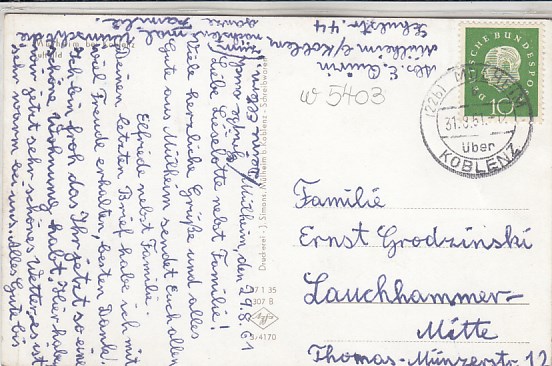 Mülheim, den 29.8.61
Liebe Liselotte nebst Familie!
Viele herzliche Grüße und alles
Gute aus Mülheim sendet Euch allen
Elfriede nebst Familie.
Deinen letzten Brief habe ich mit
viel Freude erhalten, besten Dank!
Ich bin froh das Ihr jetzt so eine
schöne Wohnung habt. Hier haben
wir jetzt sehr schönes Wetter, es ist
sehr warm bei uns. Alles Gute bis
Abs. E.
Mülheim b/Koblenz
Schulstr. 44
W 5403
DEUTSCHE BUNDESPOST
10
(22b) MÜLHEIM
31.8.61
über
KOBLENZ
Mülheim bei Koblenz
Druckerei · J. Simons, Mülheim b. Koblenz · Schreibwaren
Agfa
Familie
Ernst Grodzinski
Lauchhammer-
Mitte
Thomas-Münzerstr 12